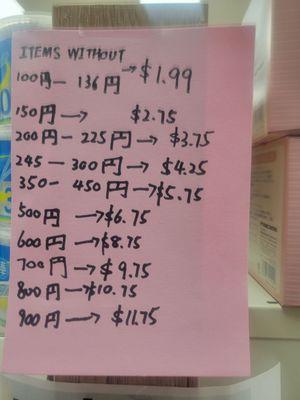 ITEMS WITHOUT
100円 - 136円 → $1.99
150円 → $2.75
200円 - 225円 → $3.75
245 - 300円 → $4.25
350 - 450円 → $5.75
500円 → $6.75
600円 → $8.75
700円 → $9.75
800円 → $10.75
900円 → $11.75